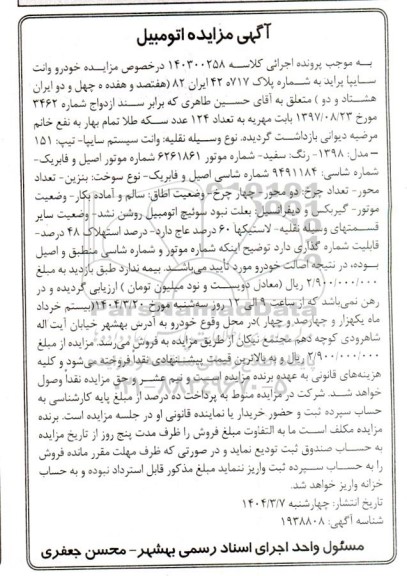 آگهی مزایده اتومبیل
به موجب پرونده اجرائی کلاسه ۱۴۰۳۰۰۲۵۸ درخصوص مزایده خودرو وانت
سایپا پراید به شماره پلاک ۷۱۷ه ۴۲ ایران ۸۲ (هفتصد و هفده ه چهل و دو ایران
هشتاد و دو ) متعلق به آقای حسین طاهری که برابر سند ازدواج شماره ۳۴۶۲
مورخ ۱۳۹۷/۰۸/۲۳ بابت مهریه به تعداد ۱۲۴ عدد سکه طلا تمام بهار به نفع خانم
مرضیه دیوانی بازداشت گردیده. نوع وسیله نقلیه: وانت سیستم سایپا- تیپ: ۱۵۱
– مدل: ۱۳۹۸- رنگ: سفید- شماره موتور ۶۲۶۱۸۶۱ شماره موتور اصیل و فابریک-
شماره شاسی: ۹۴۹۱۱۸۴ شماره شاسی اصیل و فابریک- نوع سوخت: بنزین- تعداد
محور- تعداد چرخ: دو محور- چهار چرخ- وضعیت اطاق: سالم و آماده بکار- وضعیت
موتور- گیربکس و دیفرانسیل: بعلت نبود سوئیچ اتومبیل روشن نشد- وضعیت سایر
قسمتهای وسیله نقلیه- لاستیکها ۶۰ درصد عاج دارد- درصد استهلاک ۴۸ درصد-
قابلیت شماره گذاری دارد توضیح اینکه شماره موتور و شماره شاسی منطبق و اصیل
بوده، در نتیجه اصالت خودرو مورد تأیید می‌باشد. بیمه ندارد طبق بازدید به مبلغ
۲/۹۰۰/۰۰۰/۰۰۰ ریال (معادل دویست و نود میلیون تومان ) ارزیابی گردیده و در
رهن نمی‌باشد که از ساعت ۹ الی ۱۲ روز سه‌شنبه مورخ ۱۴۰۴/۳/۲۰(بیستم خرداد
ماه یکهزار و چهارصد و چهار )در محل وقوع خودرو به آدرس بهشهر خیابان آیت اله
شاهرودی کوچه دهم مجتمع نیکان از طریق مزایده به فروش می‌رسد. مزایده از مبلغ
۲/۹۰۰/۰۰۰/۰۰۰ ریال و به بالاترین قیمت پیشنهادی نقداً فروخته می‌شود و کلیه
هزینه‌های قانونی به عهده برنده مزایده است و نیم عشر و حق مزایده نقداً وصول
خواهد شد. شرکت در مزایده منوط به پرداخت ده درصد از مبلغ پایه کارشناسی به
حساب سپرده ثبت و حضور خریدار یا نماینده قانونی او در جلسه مزایده است. برنده
مزایده مکلف است ما به التفاوت مبلغ فروش را ظرف مدت پنج روز از تاریخ مزایده
به حساب صندوق ثبت تودیع نماید و در صورتی که ظرف مهلت مقرر مانده فروش
را به حساب سپرده ثبت واریز ننماید مبلغ مذکور قابل استرداد نبوده و به حساب
خزانه واریز خواهد شد.
تاریخ انتشار: چهارشنبه ۱۴۰۴/۳/۷
شناسه آگهی: ۱۹۳۸۸۰۸
مسئول واحد اجرای اسناد رسمی بهشهر- محسن جعفری